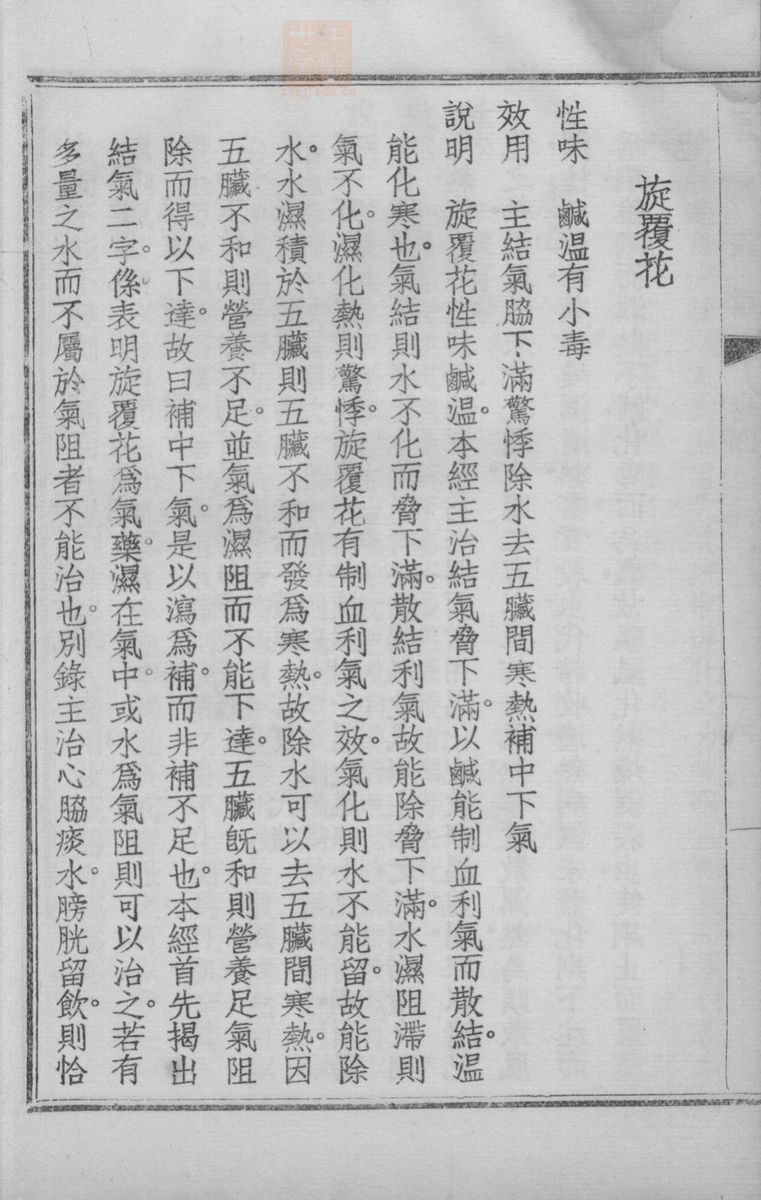 旋覆花
性味　鹹溫有小毒
效用　主結氣脇下滿驚悸除水去五臟間寒熱補中下氣
說明　旋覆花性味鹹溫。本經主治結氣脅下滿。以鹹能制血利氣而散結。溫
能化寒也。氣結則水不化而脅下滿。散結利氣故能除脅下滿。水濕阻滯則
氣不化。濕化熱則驚悸。旋覆花有制血利氣之效。氣化則水不能留。故能除
水。水濕積於五臟則五臟不和而發爲寒熱。故除水可以去五臟間寒熱。因
五臟不和則營養不足。並氣爲濕阻而不能下達。五臟旣和則營養足氣阻
除而得以下達。故曰補中下氣。是以瀉爲補。而非補不足也。本經首先揭出
結氣二字。係表明旋覆花爲氣藥。濕在氣中。或水爲氣阻則可以治之。若有
多量之水而不屬於氣阻者不能治也。別錄主治心脇痰水。膀胱留飲。則恰